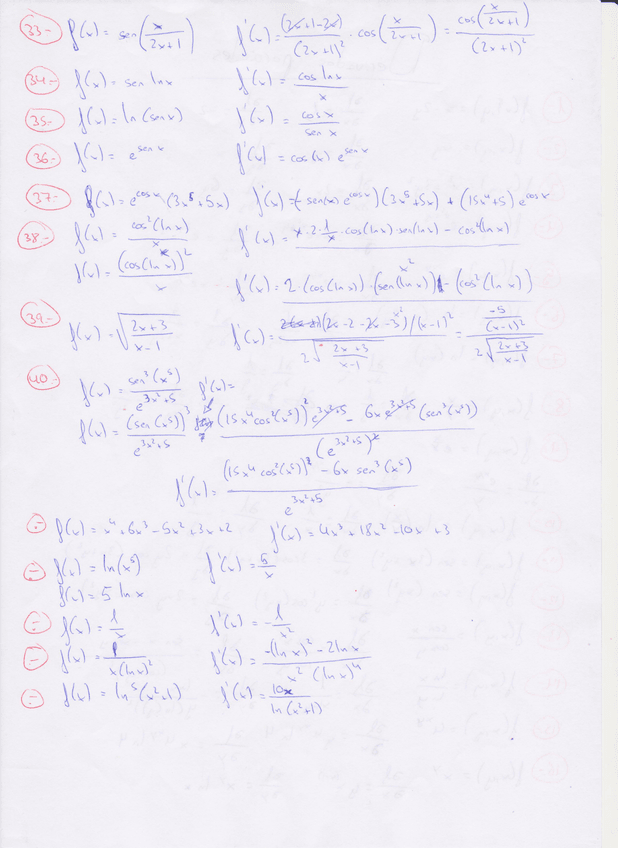 33.- f(x) = sen(x/(2x+1)) f'(x) = (2x+1-2x)/(2x+1)² · cos(x/(2x+1)) = cos(x/(2x+1))/(2x+1)²
34.- f(x) = sen lnx f'(x) = cos lnx/x
35.- f(x) = ln(senx) f'(x) = cosx/senx
36.- f(x) = e^senx f'(x) = cos(x) e^senx
37.- f(x) = e^cosx (3x⁵+5x) f'(x) = (-sen(x) e^cosx)(3x⁵+5x) + (15x⁴+5) e^cosx
38.- f(x) = cos²(lnx)/x f'(x) = x·2·1/x·cos(lnx)·sen(lnx) - cos²(lnx)
f(x) = (cos(lnx))²/x f'(x) = 2·(cos(lnx))·(sen(lnx)) - (cos²(lnx))/x²
39.- f(x) = √((2x+3)/(x-1)) f'(x) = (2x-2-2x-3)/(x-1)²/2√((2x+3)/(x-1)) = -5/(x-1)²/2√((2x+3)/(x-1))
40.- f(x) = sen³(x⁵)/e^(3x²+5) f'(x) =
f(x) = (sen(x⁵))³/e^(3x²+5) (15x⁴cos²(x⁵))² e^(3x²+5) - 6x e^(3x²+5) (sen³(x⁵))/(e^(3x²+5))²
f'(x) = (15x⁴cos²(x⁵))² - 6x sen³(x⁵)/e^(3x²+5)
.- f(x) = x⁴+6x³-5x²+3x+2 f'(x) = 4x³+18x²-10x+3
.- f(x) = ln(x⁵) f'(x) = 5/x
f(x) = 5 lnx
.- f(x) = 1/x f'(x) = -1/x²
.- f(x) = 1/x(lnx)² f'(x) = -(lnx)²-2lnx/x² (lnx)⁴
.- f(x) = ln⁵(x²+1) f'(x) = 10x/ln(x²+1)